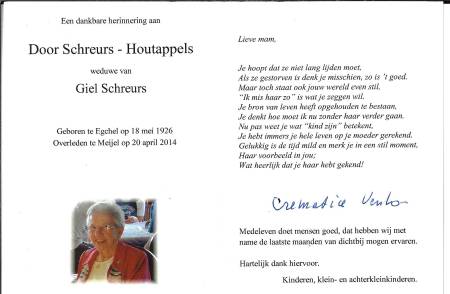 Een dankbare herinnering aan
Door Schreurs - Houtappels
weduwe van
Giel Schreurs
Geboren te Egchel op 18 mei 1926
Overleden te Meijel op 20 april 2014
Lieve mam,
Je hoopt dat ze niet lang lijden moet,
Als ze gestorven is denk je misschien, zo is 't goed.
Maar toch staat ook jouw wereld even stil,
"Ik mis haar zo" is wat je zeggen wil.
Je bron van leven heeft opgehouden te bestaan,
Je denkt hoe moet ik nu zonder haar verder gaan.
Nu pas weet je wat "kind zijn" betekent,
Je hebt immers je hele leven op je moeder gerekend.
Gelukkig is de tijd mild en merk je in een stil moment,
Haar voorbeeld in jou;
Wat heerlijk dat je haar hebt gekend!
Crematie Venlo
Medeleven doet mensen goed, dat hebben wij met
name de laatste maanden van dichtbij mogen ervaren.
Hartelijk dank hiervoor.
Kinderen, klein- en achterkleinkinderen.